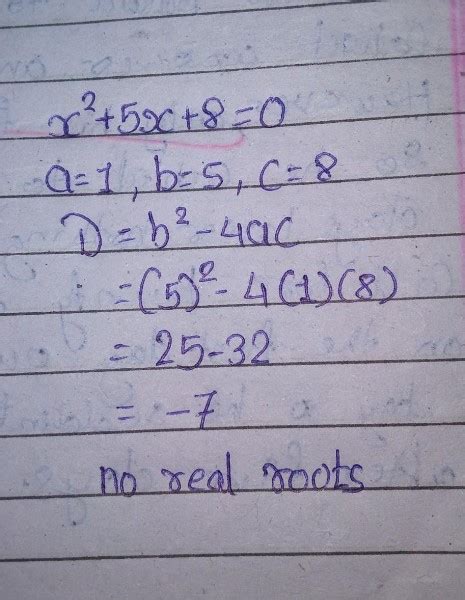 x²+5x+8=0
a=1, b=5, c=8
D = b² - 4ac
= (5)² - 4(1)(8)
= 25-32
= -7
no real roots